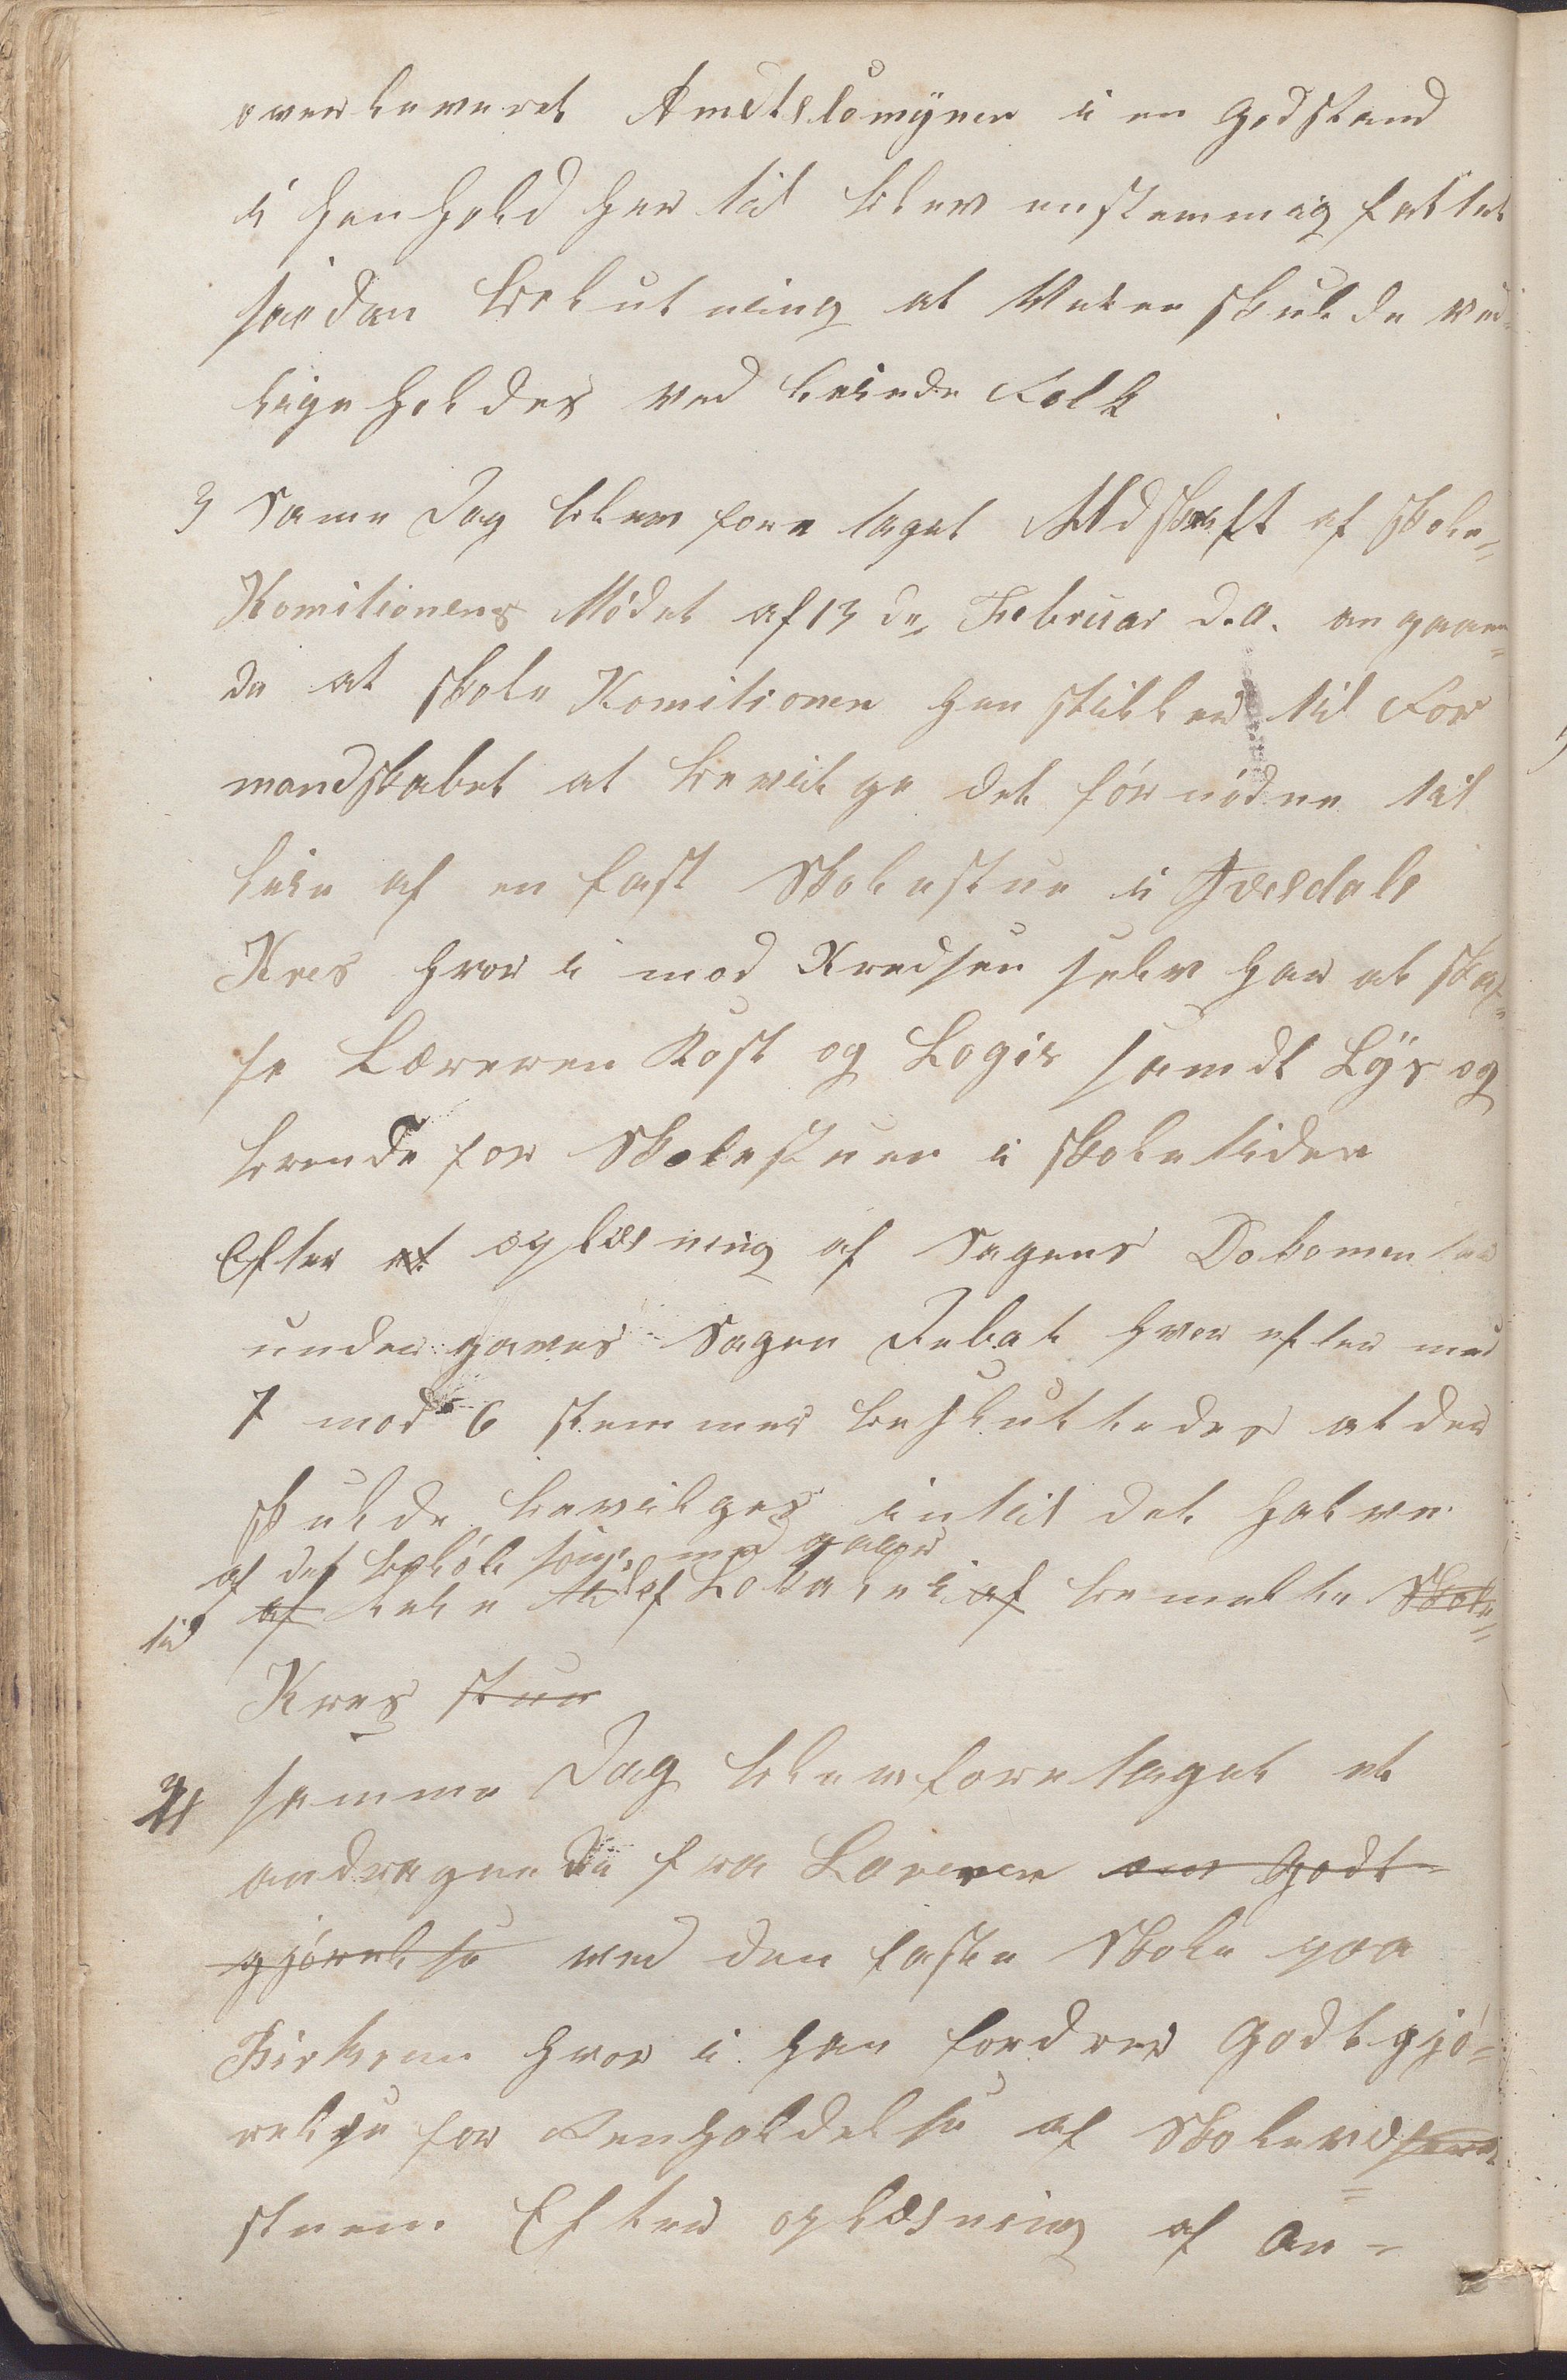 overleveret Amdtslomynen i en godstand
i henhold her til blev enstemmig fattet
saadan beslutning at Veien skulde ved
lige holdes ved leiede Folk
3 Same Dag blev fore taget Udskrift af Skole=
Komitionens Mødet af 13 de Februar d.a. an gaaen=
de at Skole Komitionen hen stiller til For
mandskabet at bevilge det før nødne til
leie af en fast Skolestue i Gjesdals
Kres hvor i mod Kredsen selv har at skaf=
fe Læreren Kost og Logis samdt Lys og
brende for Skolestuen i Skoletiden
Efter et oplæsning af Sagens Dokomenter
under gaves Sagen Debat hvor efter med
7 mod 6 stemmer besluttedes at der
skulde bevilges intil det halve
af det beløb som med gaar
til af leie af Lokale i af bemelte Skole=
Kres stue
4 samme Dag blev foretaget et
andragende fra Læreren om Godt=
gjørelse ved den faste Skole paa
Kirkenn hvor i han fordrer Godtgjø=
relse for Renholdelse af Skolen
stuen. Efter oplæsning af an=